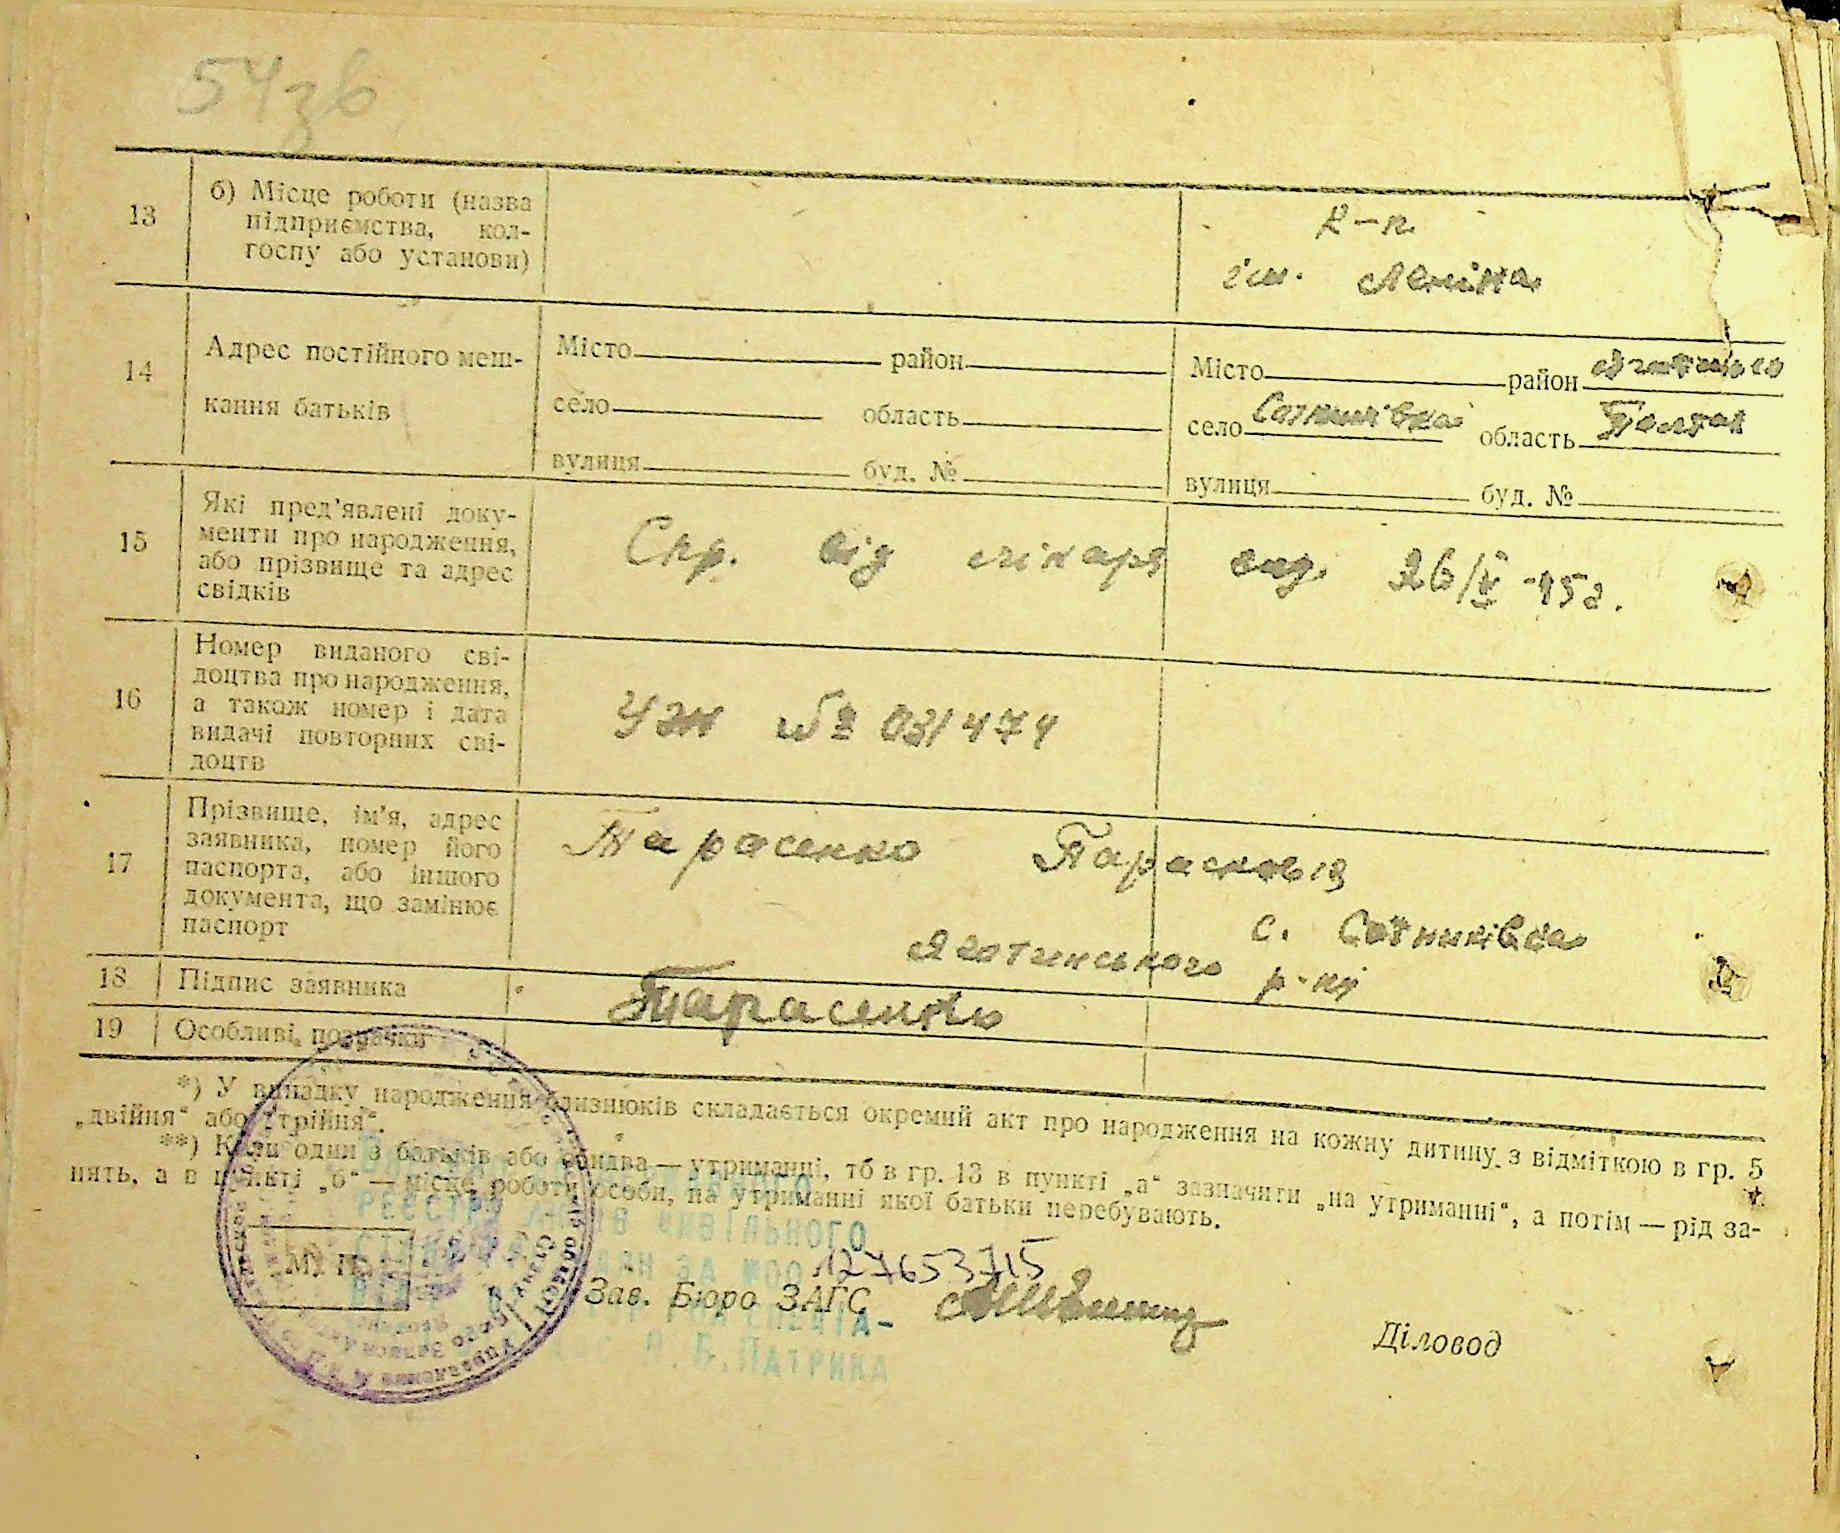 54зв
13
б) Місце роботи (назва
підприємства, кол-
госпу або установи)
к-п.
ім. Леніна
14
Адрес постійного меш-
кання батьків
Місто район
село область
вулиця буд. №
Місто район
село Сотниківка область Полтав
вулиця буд. №
15
Які пред'явлені доку-
менти про народження,
або прізвище та адрес
свідків
Спр. від лікаря вид. 26/V-45г.
16
Номер виданого сві-
доцтва про народження,
а також номер і дата
видачі повторних сві-
доцтв
УЗН № 031474
17
Прізвище, ім'я, адрес
заявника, номер його
паспорта, або іншого
документа, що замінює
паспорт
Тарасенко Парасковія
с. Сотниківка
Яготинського р-ну
18 Підпис заявника
Тарасенко
19 Особливі позначки
*) У випадку народження близнюків складається окремий акт про народження на кожну дитину з відміткою в гр. 5
„двійня“ або „трійня“.
**) Коли один з батьків або обидва — утриманці, то в гр. 13 в пункті „а“ зазначити „на утриманні“, а потім — рід за-
нять, а в пункті „б“ — місце роботи особи, на утриманні якої батьки перебувають.
РЕЄСТРУ АКТІВ ЦИВІЛЬНОГО
СТАНУ ГРОМАДЯН ЗА №00 127653715
М. П.
Зав. Бюро ЗАГС
Діловод
Н.В.ПАТРИКА